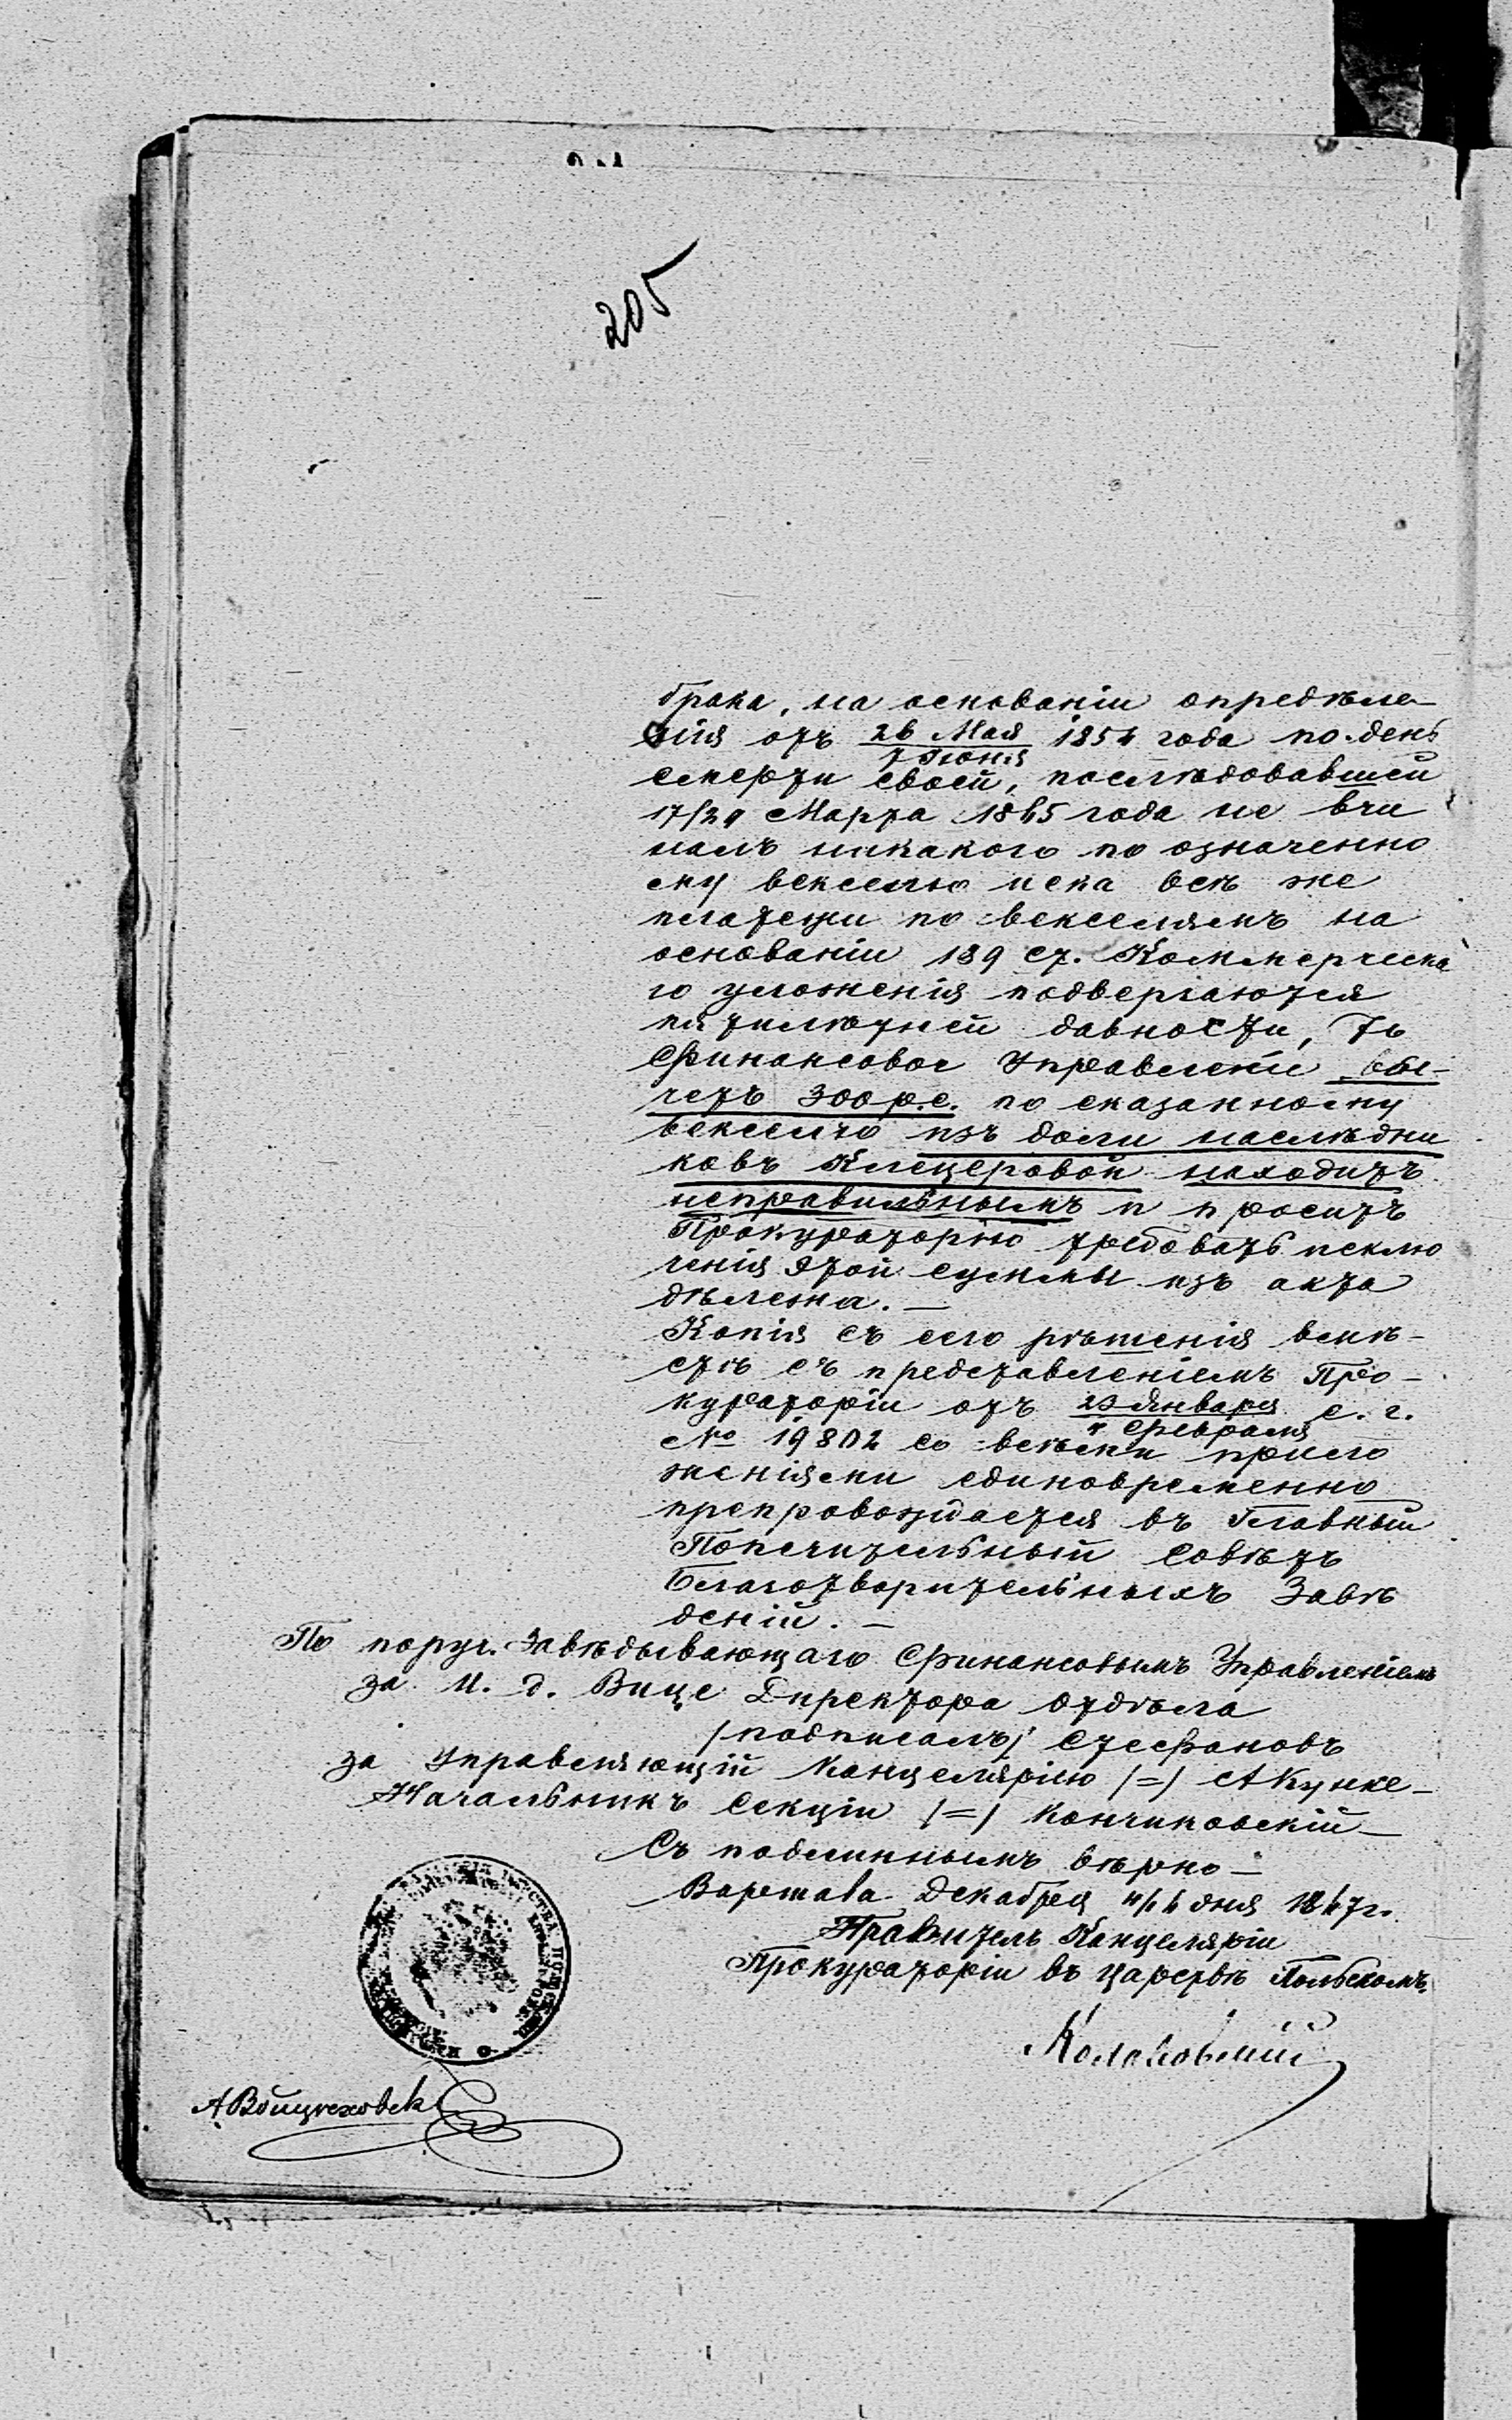 205
брака, на основаніи опредѣле-
нія отъ 26 Мая / 7 Іюня 1854 года по день
смерти своей, послѣдовавшей
17/29 Марта 1865 года не вчи
налъ никакого по означенно
му векселю иска всѣ же
платежи по векселямъ на
основаніи 189 ст. Коммерческа
го уложенія подвергаются
пятилѣтней давности, то
Финансовое Управленіе вы-
четъ 300 р.с. по сказанному
векселю изъ доли наслѣдни
ковъ Клецеровой находитъ
неправильнымъ и проситъ
Прокураторію требовать исклю
ченія этой суммы изъ акта
дѣлежа. —
Копія съ сего рѣшенія вмѣ-
стѣ съ представленіемъ Про-
кураторіи отъ 23 Января / 4 Февраля с. г.
№ 19802 со всѣми прило
женіями единовременно
препровождается въ Главный
Попечительный Совѣтъ
Благотворительныхъ Заве
деній. —
По поруч. Завѣдывающаго Финансовымъ Управленіемъ
за И. д. Вице Директора Отдѣла
/подписалъ/ Стефановъ
за Управляющій Канцеляріею /=/ А Кунке-
Начальникъ Секціи /=/ Кончиковскій —
Съ подлиннымъ вѣрно —
Варшава Декабря 4/16 дня 1867 г.
Правитель Канцеляріи
Прокураторіи въ Царствѣ Польскомъ.
Колаковскій
А Войцеховск